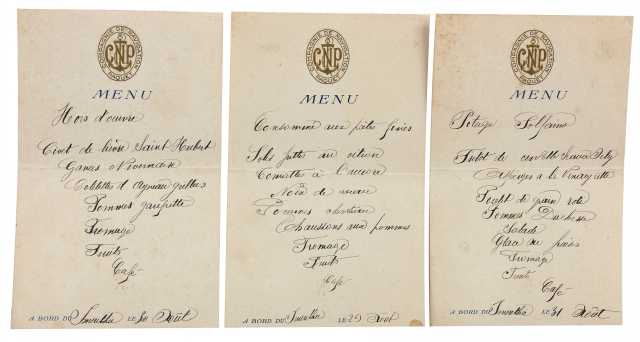 COMPAGNIE DE NAVIGATION PAQUET
CNP
MENU
Hors d'oeuvre
Civet de lièvre Saint Hubert
Côtelettes d'Agneau grillées
Pommes
Fromage
Fruits
Café
A BORD DU LE 30 Août
COMPAGNIE DE NAVIGATION PAQUET
CNP
MENU
Consommé aux pâtes fines
Sole frites au citron
Tomates à
Noix de veau
Pommes
Chaussons aux pommes
Fromage
Fruits
Café
A BORD DU LE 29 Août
COMPAGNIE DE NAVIGATION PAQUET
CNP
MENU
Potage Solférino
de
Asperges à la Vinaigrette
Poulet de grain rôti
Pommes Duchesse
Salade
Glace
Fromage
Fruits
Café
A BORD DU LE 31 Août